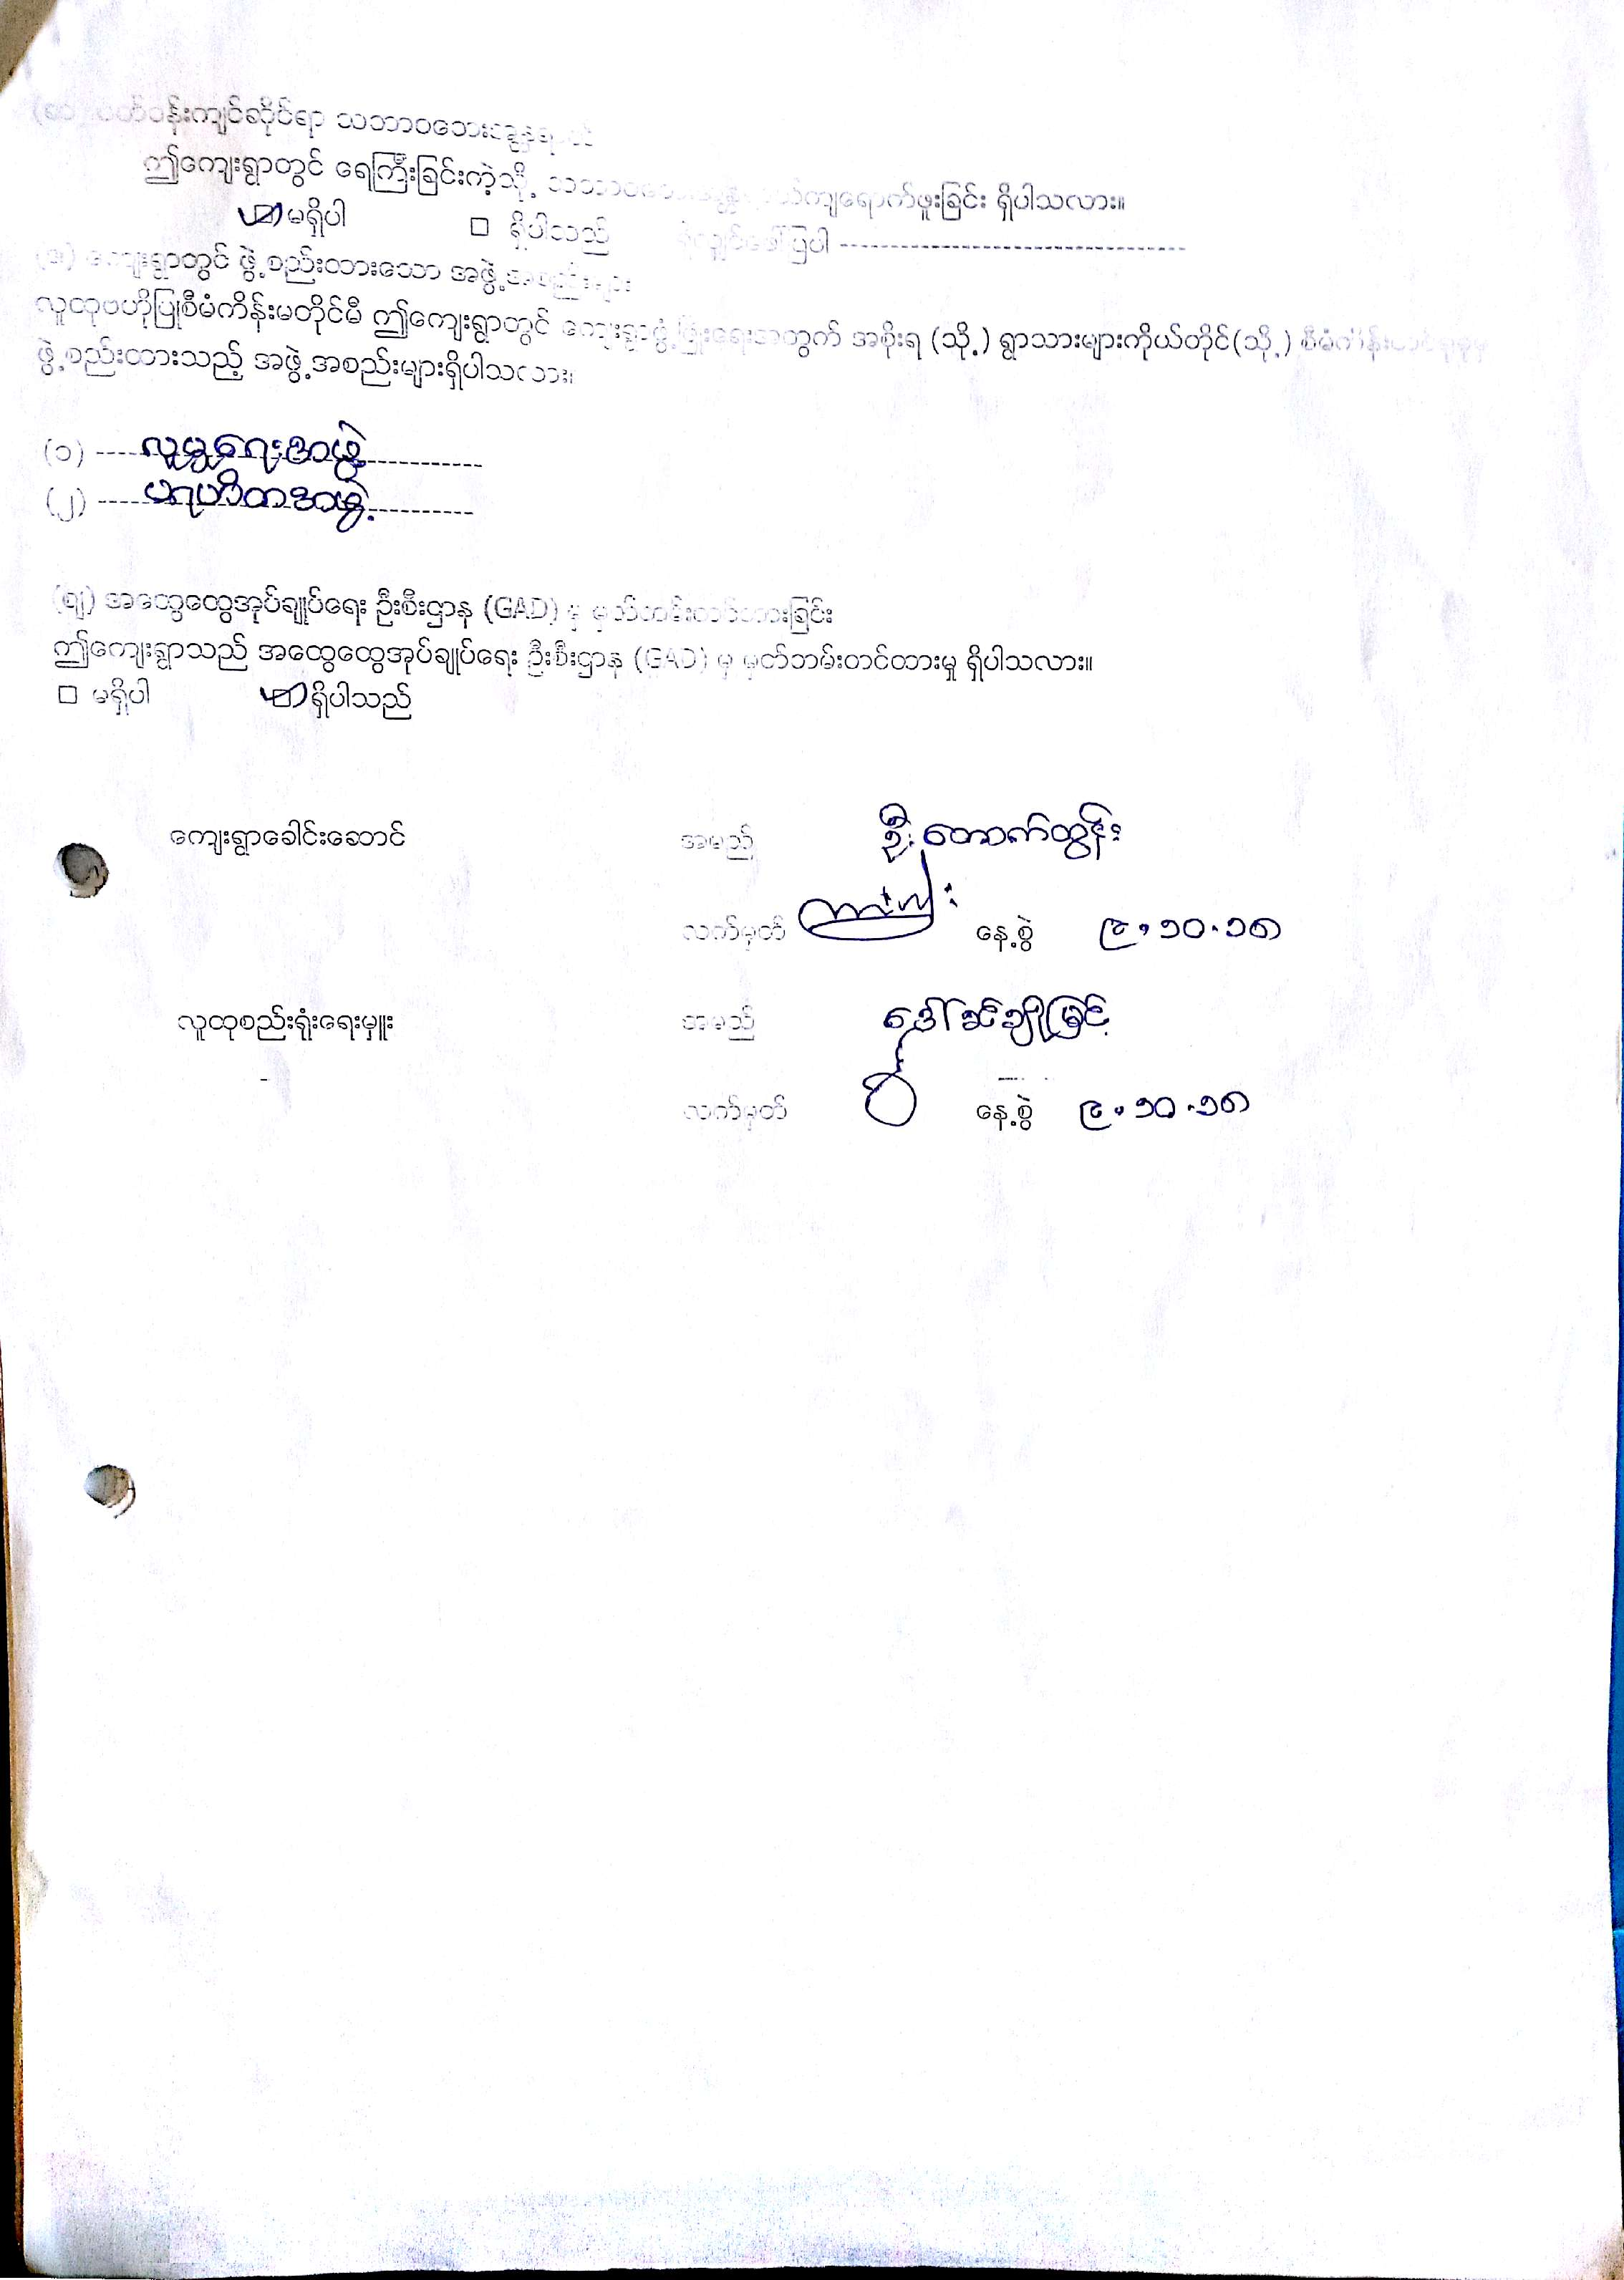 ပတ်ဝန်းကျင်ဆိုင်ရာ သဘာဝဘေးအန္တရာယ်
ဤကျေးရွာတွင် ရေကြီးခြင်းကဲ့သို့ သဘာဝဘေးအန္တရာယ်ကျရောက်ဖူးခြင်း ရှိပါသလား။
☑ မရှိပါ □ ရှိပါသည် ရှိလျှင်ဖော်ပြပါ ---------------------------------
ကျေးရွာတွင် ဖွဲ့စည်းထားသော အဖွဲ့အစည်းများ
လူထုဗဟိုပြုစီမံကိန်းမတိုင်မီ ဤကျေးရွာတွင် ကျေးရွာဖွံ့ဖြိုးရေးအတွက် အစိုးရ (သို့) ရွာသားများကိုယ်တိုင်(သို့)
ဖွဲ့စည်းထားသည့် အဖွဲ့အစည်းများရှိပါသလား။
(၁) ---- လူမှုရေးအဖွဲ့ ------------
(၂) ---- ပရဟိတအဖွဲ့ ----------
(ဈ) အထွေထွေအုပ်ချုပ်ရေး ဦးစီးဌာန (GAD) မှ မှတ်ပုံတင်ထားခြင်း
ဤကျေးရွာသည် အထွေထွေအုပ်ချုပ်ရေး ဦးစီးဌာန (GAD) မှ မှတ်တမ်းတင်ထားမှု ရှိပါသလား။
□ မရှိပါ ☑ ရှိပါသည်
ကျေးရွာခေါင်းဆောင် အမည် ဦးတောက်ထွန်း
လက်မှတ် နေ့စွဲ ၉.၁၀.၁၈
လူထုစည်းရုံးရေးမှူး အမည် ဒေါ်ခင်ချိုမြင့်
လက်မှတ် နေ့စွဲ ၉.၁၀.၁၈